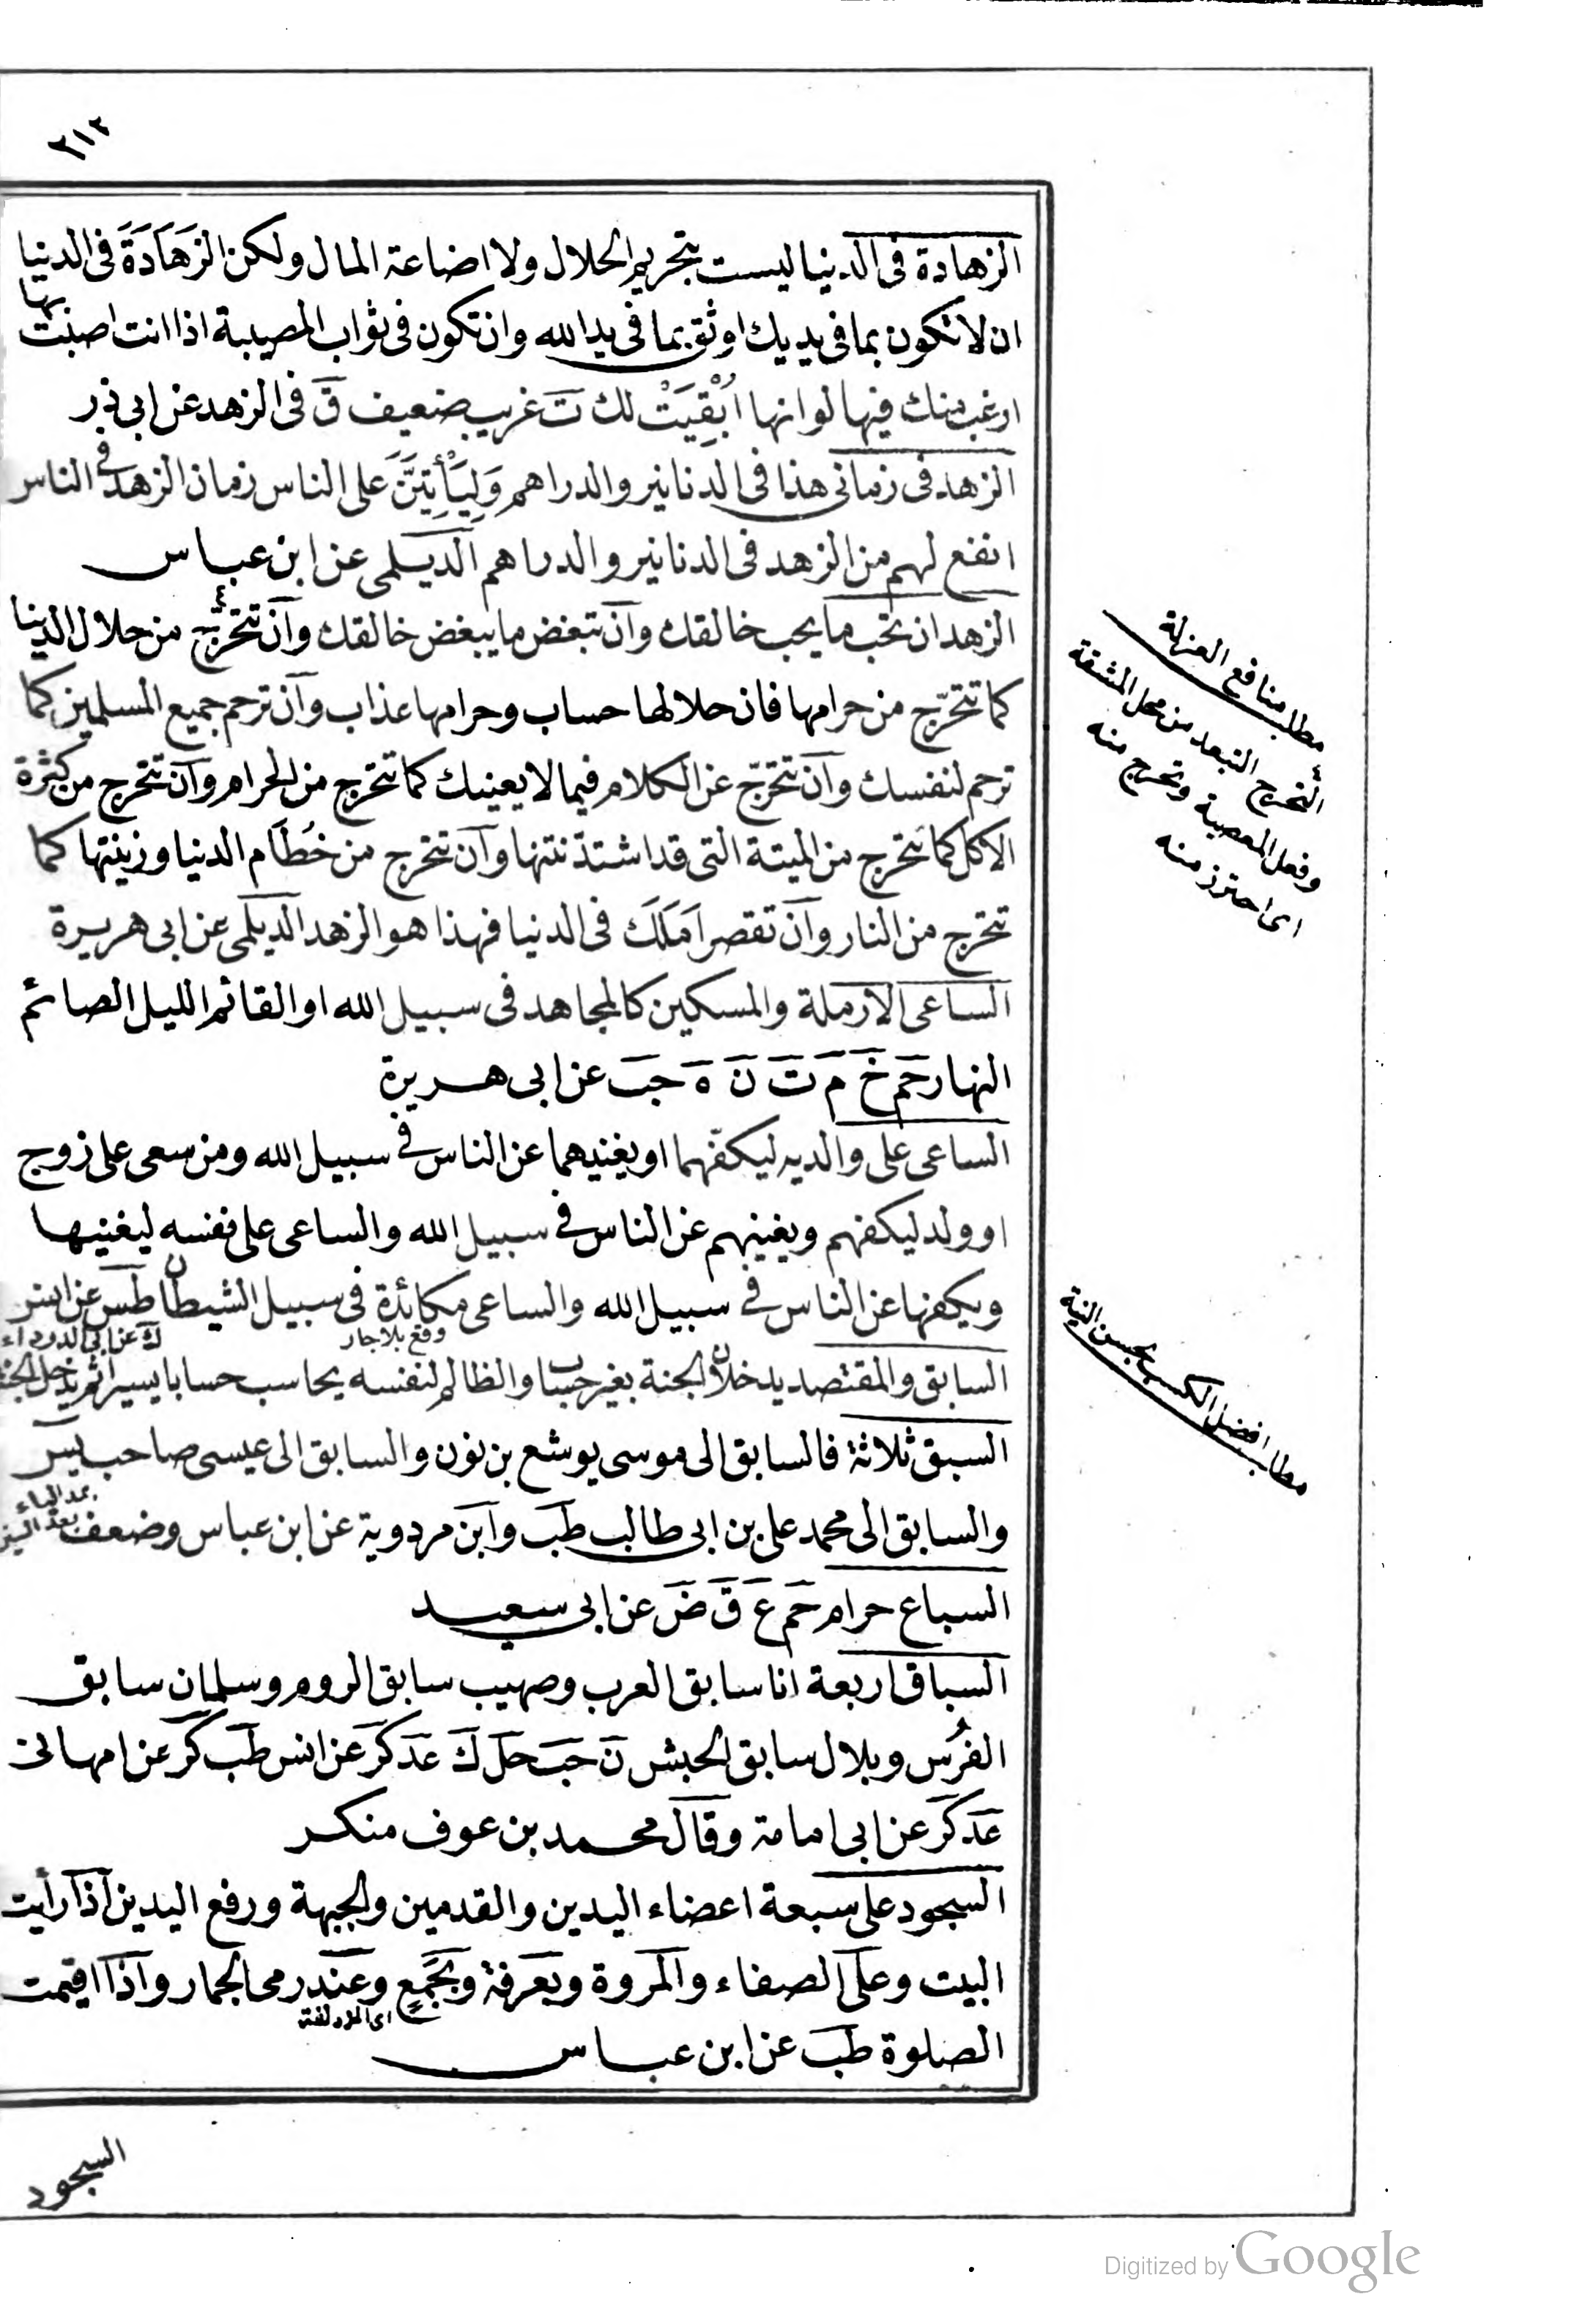 ٢١٢
الزهادة فى الدنيا ليست بتحريم الحلال ولا اضاعة المال ولكن الزَهَادَةَ فى الدنيا
ان لا تكون بما فى يديك اوثق بما فى يد الله وان تكون فى ثواب المصيبة اذا انت اصبت بها
ارغب منك فيها لو انها اُبْقِيَتْ لك تَ غريب ضعيف قَ فى الزهد عن ابى ذر
الزهد فى زمانى هذا فى الدنانير والدراهم وَلَيَأْتِيَنَّ على الناس زمان الزهد فى الناس
انفع لهم من الزهد فى الدنانير والدراهم الديلمى عن ابن عباس
الزهد ان تحب ما يحب خالقك وان تبغض ما يبغض خالقك وان تتحرّج ٤ من حلال الدنيا
كما تتحرّج من حرامها فان حلالها حساب وحرامها عذاب وان ترحم جميع المسلمين كما
ترحم لنفسك وان تتحرّج عن الكلام فيما لا يعنيك كما تتحرج من الحرام وان تتحرج من كثرة
الاكل كما تتحرج من الميتة التى قد اشتد نتنها وان تتحرج من حُطَام الدنيا وزينتها كما
تتحرج من النار وان تقصر اَمَلَك فى الدنيا فهذا هو الزهد الديلمى عن ابى هريرة
الساعى الارملة والمسكين كالمجاهد فى سبيل الله او القائم الليل الصائم
النهار حَم خَ مَ تَ نَ هَ حبَ عن ابى هريرة
الساعى على والديه ليكفّهما او يغنيهما عن الناس فى سبيل الله ومن سعى على زوج
او ولد ليكفهم ويغنيهم عن الناس فى سبيل الله والساعى على نفسه ليغنيها
ويكفها عن الناس فى سبيل الله والساعى مكائدة فى سبيل الشيطان طسَ عن انس
وقع بلا جار
كَ عن ابى الدرداء
السابق والمقتصد يدخلان الجنة بغير حساب والظالم لنفسه يحاسب حسابا يسيرا ثم يدخل الجنة
السبق ثلاثة فالسابق الى موسى يوشع بن نون والسابق الى عيسى صاحب يس
والسابق الى محمد على بن ابى طالب طبَ وابن مردوية عن ابن عباس وضعف
السباع حرام حَم عَ قَ ضَ عن ابى سعيد
السباق اربعة انا سابق العرب وصهيب سابق الروم وسلمان سابق
الفُرس وبلال سابق الحبش نَ حبَ حلَ كَ عد كرَ عن انس طبَ كرَ عن ام هانئ
عد كرَ عن ابى امامة وقال محمد بن عوف منكر
السجود على سبعة اعضاء اليدين والقدمين والجبهة ورفع اليدين اذا رأيت
البيت وعلى الصفاء والمروة وبعرفة وبجَمعٍ وعند رمى الجمار واذا اقيمت
اى المزدلفة
الصلوة طبَ عن ابن عباس
السجود
مطلب منافع العزلة
٤ التحرج التبعد من محل المشقة
وفعل المعصية وتحرج منه
اى احترز منه
مطلب افضل الكسب بحسن النية
Digitized by Google